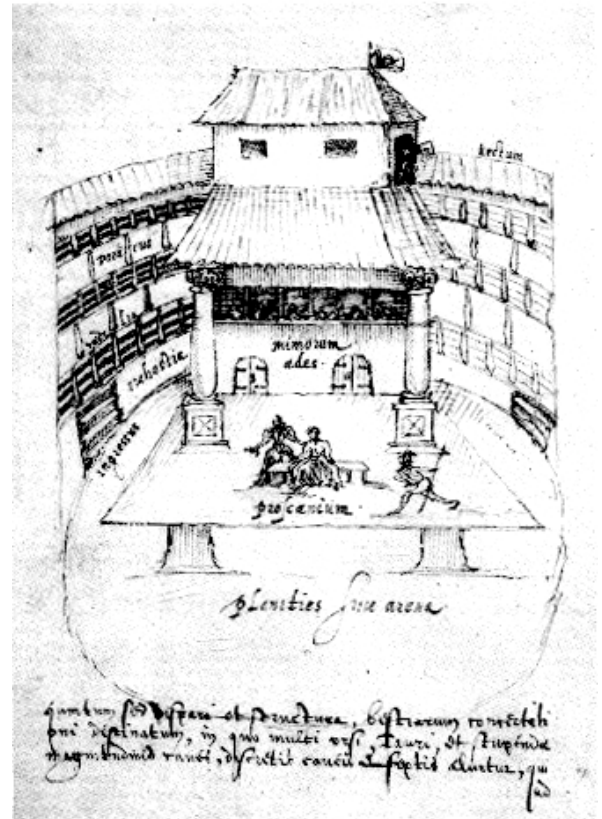 tectum
porticus
sedilia
orchestra
ingressus
mimorum
ædes.
proscænium.
planities sive arena.
quantum sed dispari et structura, bestiarum concertati
oni destinatum, in quo multi ursi, Tauri, et stupendæ
magnitudinis canes, discretis caveis et septis aluntur, qui
ad